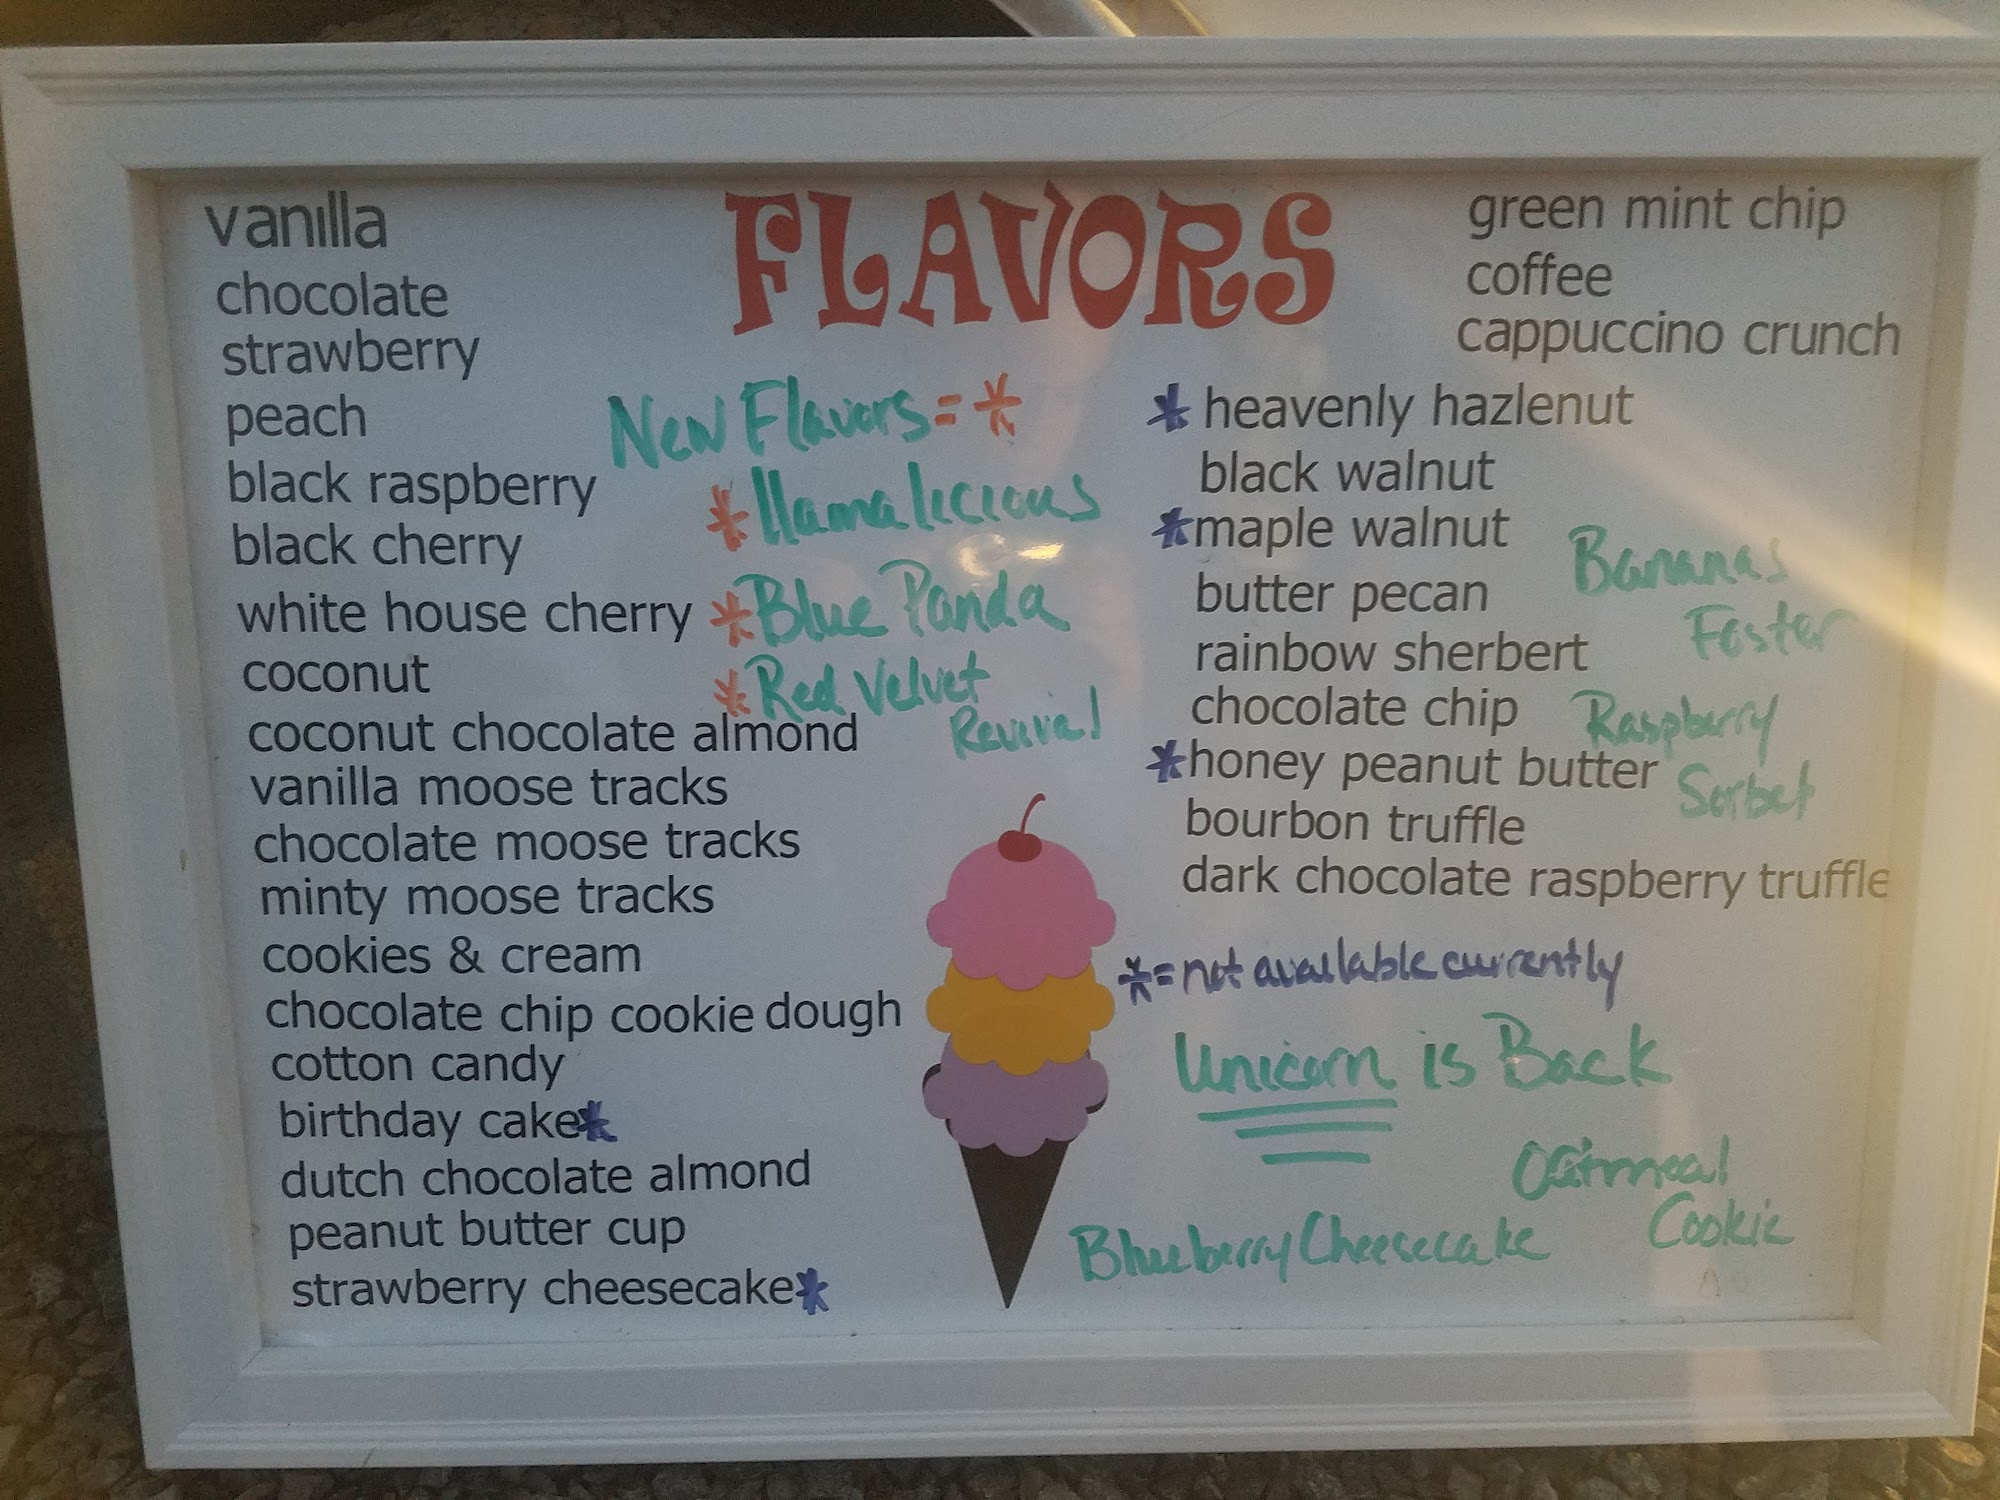 FLAVORS
vanilla
chocolate
strawberry
peach
black raspberry
black cherry
white house cherry
coconut
coconut chocolate almond
vanilla moose tracks
chocolate moose tracks
minty moose tracks
cookies & cream
chocolate chip cookie dough
cotton candy
birthday cake*
dutch chocolate almond
peanut butter cup
strawberry cheesecake*
New Flavors = *
*llamalicious
*Blue Panda
*Red Velvet
Revival
green mint chip
coffee
cappuccino crunch
* heavenly hazlenut
black walnut
*maple walnut
butter pecan
rainbow sherbert
chocolate chip
*honey peanut butter
bourbon truffle
dark chocolate raspberry truffle
Bananas
Foster
Raspberry
Sorbet
*= not available currently
Unicorn is Back
Oatmeal
Cookie
Blueberry Cheesecake